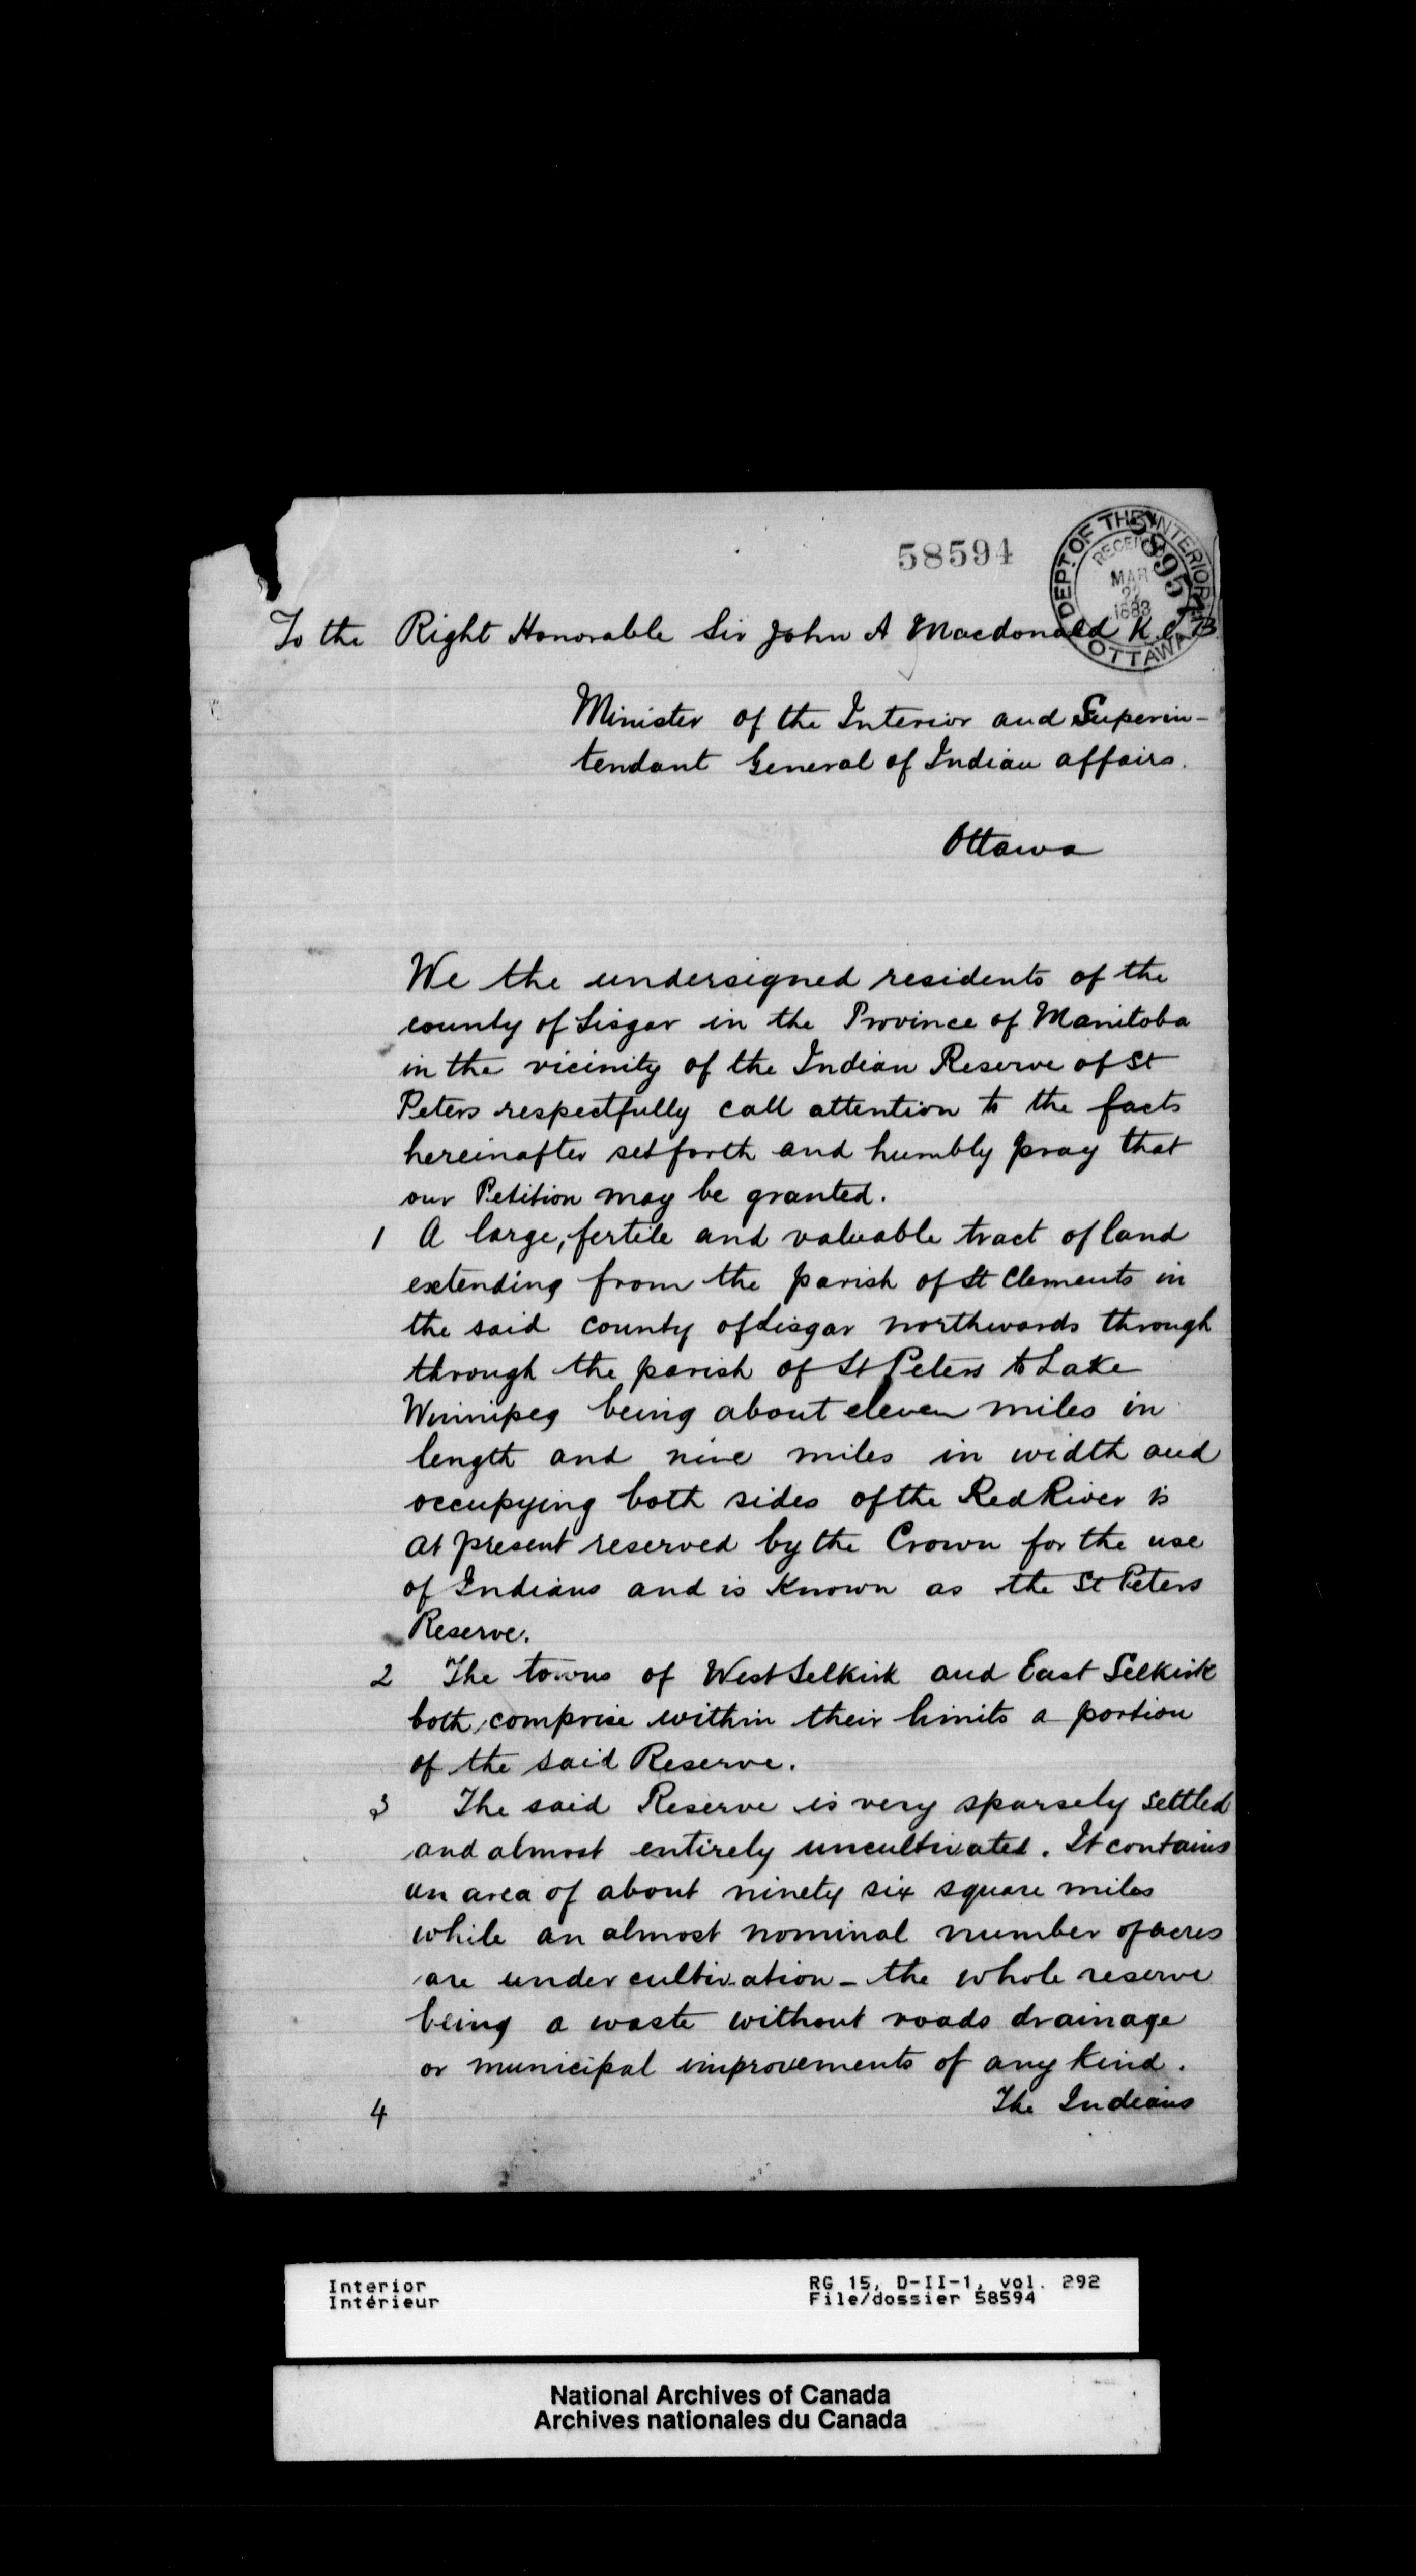 58594
DEPT. OF THE INTERIOR
RECEIVED
MAR
22
1883
OTTAWA
To the Right Honorable Sir John A Macdonald K.C.B
Minister of the Interior and Superin-
tendant General of Indian affairs.
Ottawa
We the undersigned residents of the
county of Lisgar in the Province of Manitoba
in the vicinity of the Indian Reserve of St
Peters respectfully call attention to the facts
hereinafter set forth and humbly pray that
our Petition may be granted.
1 A large, fertile and valuable tract of land
extending from the parish of St Clements in
the said county of Lisgar northwards through
through the parish of St Peters to Lake
Winnipeg being about eleven miles in
length and nine miles in width and
occupying both sides of the Red River is
at present reserved by the Crown for the use
of Indians and is Known as the St Peters
Reserve.
2 The towns of West Selkirk and East Selkirk
both comprise within their limits a portion
of the said Reserve.
3 The said Reserve is very sparsely settled
and almost entirely uncultivated. It contains
an area of about ninety six square miles
while an almost nominal number of acres
are under cultivation - the whole reserve
being a waste without roads drainage
or municipal improvements of any kind.
4 The Indians
Interior
Intérieur
RG 15, D-II-1, vol. 292
File/dossier 58594
National Archives of Canada
Archives nationales du Canada